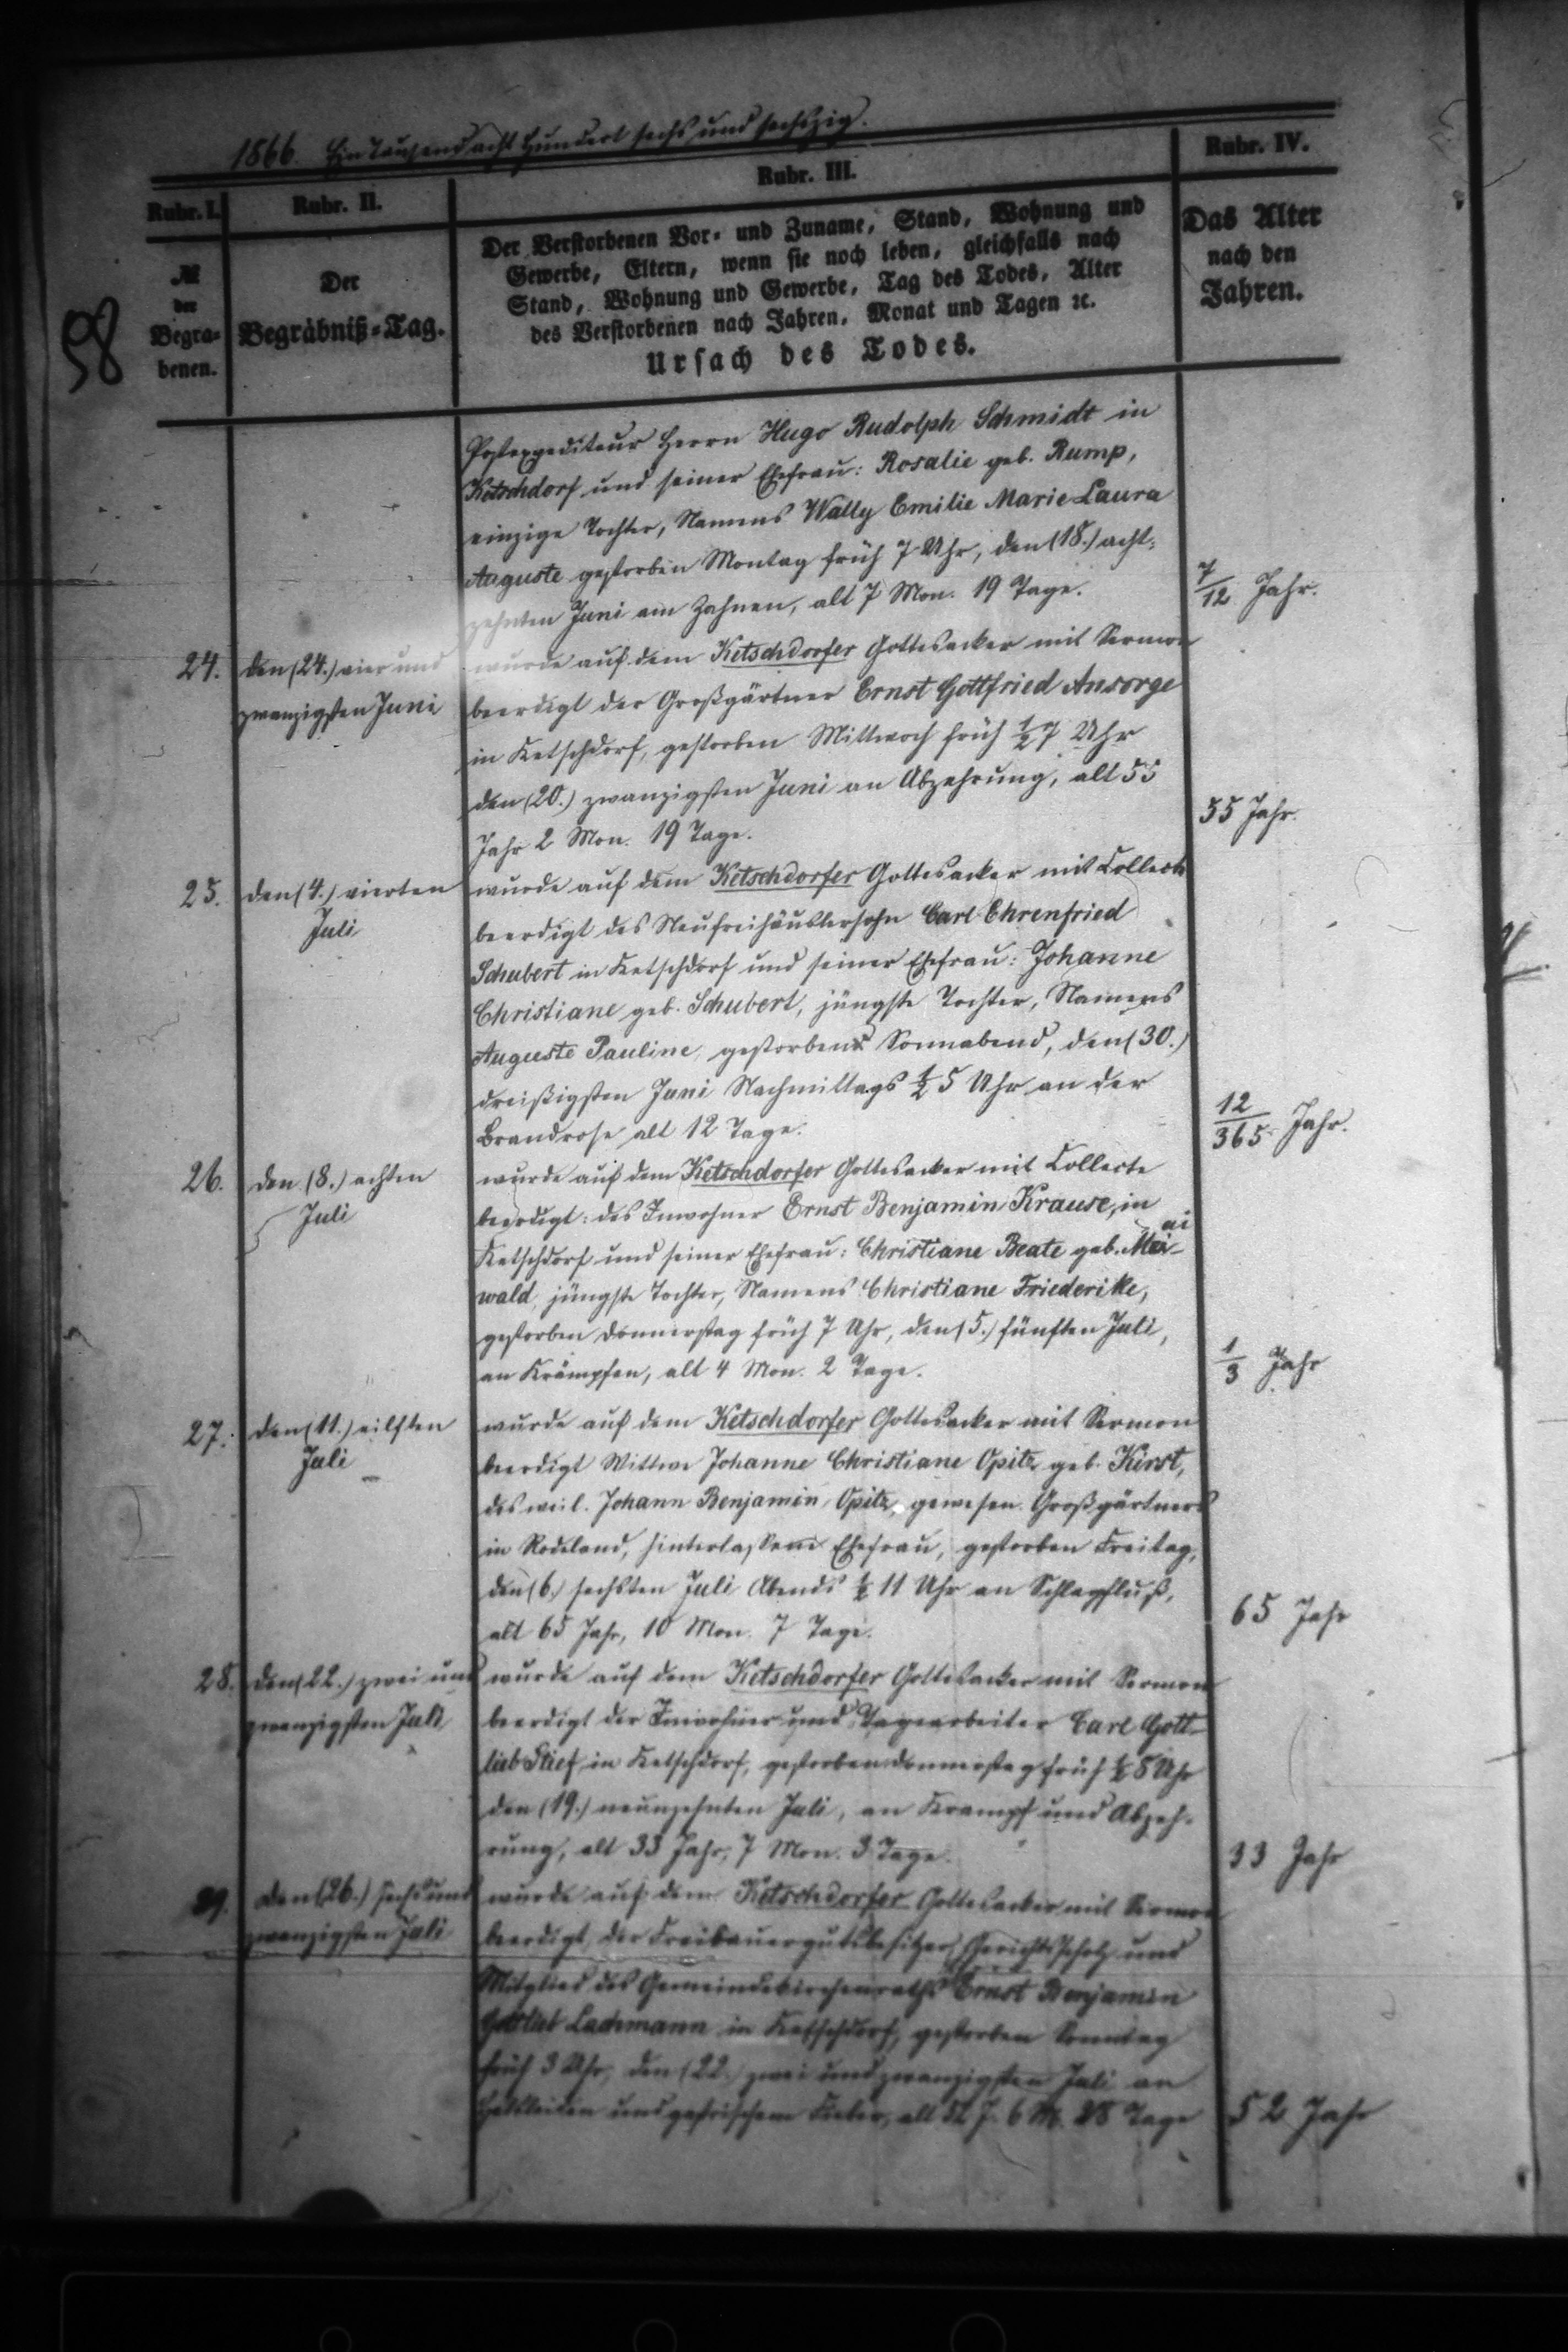 1866. Ein Tausend acht Hundert sechs und sechszig.
Rubr. I.
Rubr. II.
Rubr. III.
Rubr. IV.
№
der
Begra-
benen.
Der
Begräbniß-Tag.
Der Verstorbenen Vor- und Zuname, Stand, Wohnung und
Gewerbe, Eltern, wenn sie noch leben, gleichfalls nach
Stand, Wohnung und Gewerbe, Tag des Todes, Alter
des Verstorbenen nach Jahren, Monat und Tagen ꝛc.
Ursach des Todes.
Das Alter
nach den
Jahren.
98
Postexpediteur Herrn Hugo Rudolph Schmidt in
Ketschdorf und seiner Ehefrau: Rosalie geb. Rump,
einzige Tochter, Namens Wally Emilie Marie Laura
Auguste gestorben Montag früh 7 Uhr, den (18.) acht-
zehnten Juni am Zahnen, alt 7 Mon. 19 Tage.
7/12 Jahr.
24.
den (24.) vier und
zwanzigsten Juni
wurde auf dem Ketschdorfer Gottesacker mit Sermon
beerdigt der Großgärtner Ernst Gottfried Ansorge
in Ketschdorf, gestorben Mittwoch früh ½7 Uhr
den (20.) zwanzigsten Juni an Abzehrung, alt 55
Jahr 2 Mon. 19 Tage.
55 Jahr.
25.
den (4.) vierten
Juli
wurde auf dem Ketschdorfer Gottesacker mit Collecte
beerdigt des Neufreihäuslersohn Carl Ehrenfried
Schubert in Ketschdorf und seiner Ehefrau: Johanne
Christiane geb. Schubert, jüngste Tochter, Namens
Auguste Pauline, gestorben Sonnabend, den (30.)
dreißigsten Juni Nachmittags ½ 5 Uhr an der
Brandrose alt 12 Tage.
12/365 Jahr.
26.
den (8.) achten
Juli
wurde auf dem Ketschdorfer Gottesacker mit Collecte
beerdigt: des Inwohner Ernst Benjamin Krause, in
Ketschdorf und seiner Ehefrau: Christiane Beate geb. Mai-
wald, jüngste Tochter, Namens Christiane Friederike,
gestorben Donnerstag früh 7 Uhr, den (5.) fünften Juli,
an Krämpfen, alt 4 Mon. 2 Tage.
1/3 Jahr
27.
den (11.) eilften
Juli
wurde auf dem Ketschdorfer Gottesacker mit Sermon
beerdigt Wittwe Johanne Christiane Opitz geb. Kirst,
des weil. Johann Benjamin Opitz, gewesen. Großgärtners
in Rodeland, hinterlassene Ehefrau, gestorben Freitag,
den (6.) sechsten Juli Abends ½ 11 Uhr an Schlagfluß,
alt 65 Jahr, 10 Mon. 7 Tage.
65 Jahr
28.
den (22.) zwei und
zwanzigsten Juli
wurde auf dem Ketschdorfer Gottesacker mit Sermon
beerdigt der Inwohner und Tagearbeiter Carl Gott-
lieb Stief in Ketschdorf, gestorben Donnerstag früh ½ 8 Uhr
den (19.) neunzehnten Juli, an Krampf und Abzeh-
rung, alt 33 Jahr, 7 Mon. 3 Tage.
33 Jahr
29.
den (26.) sechs und
zwanzigsten Juli
wurde auf dem Ketschdorfer Gottesacker mit Sermon
beerdigt, der Freibauergutsbesitzer, Gerichtsscholz und
Mitglied des Gemeindekirchenraths Ernst Benjamin
Gottlieb Lachmann in Ketschdorf, gestorben Sonntag
früh 3 Uhr, den (22.) zwei und zwanzigsten Juli an
und gastrischem Fieber, alt 52 J. 6 M. 28 Tage
52 Jahr